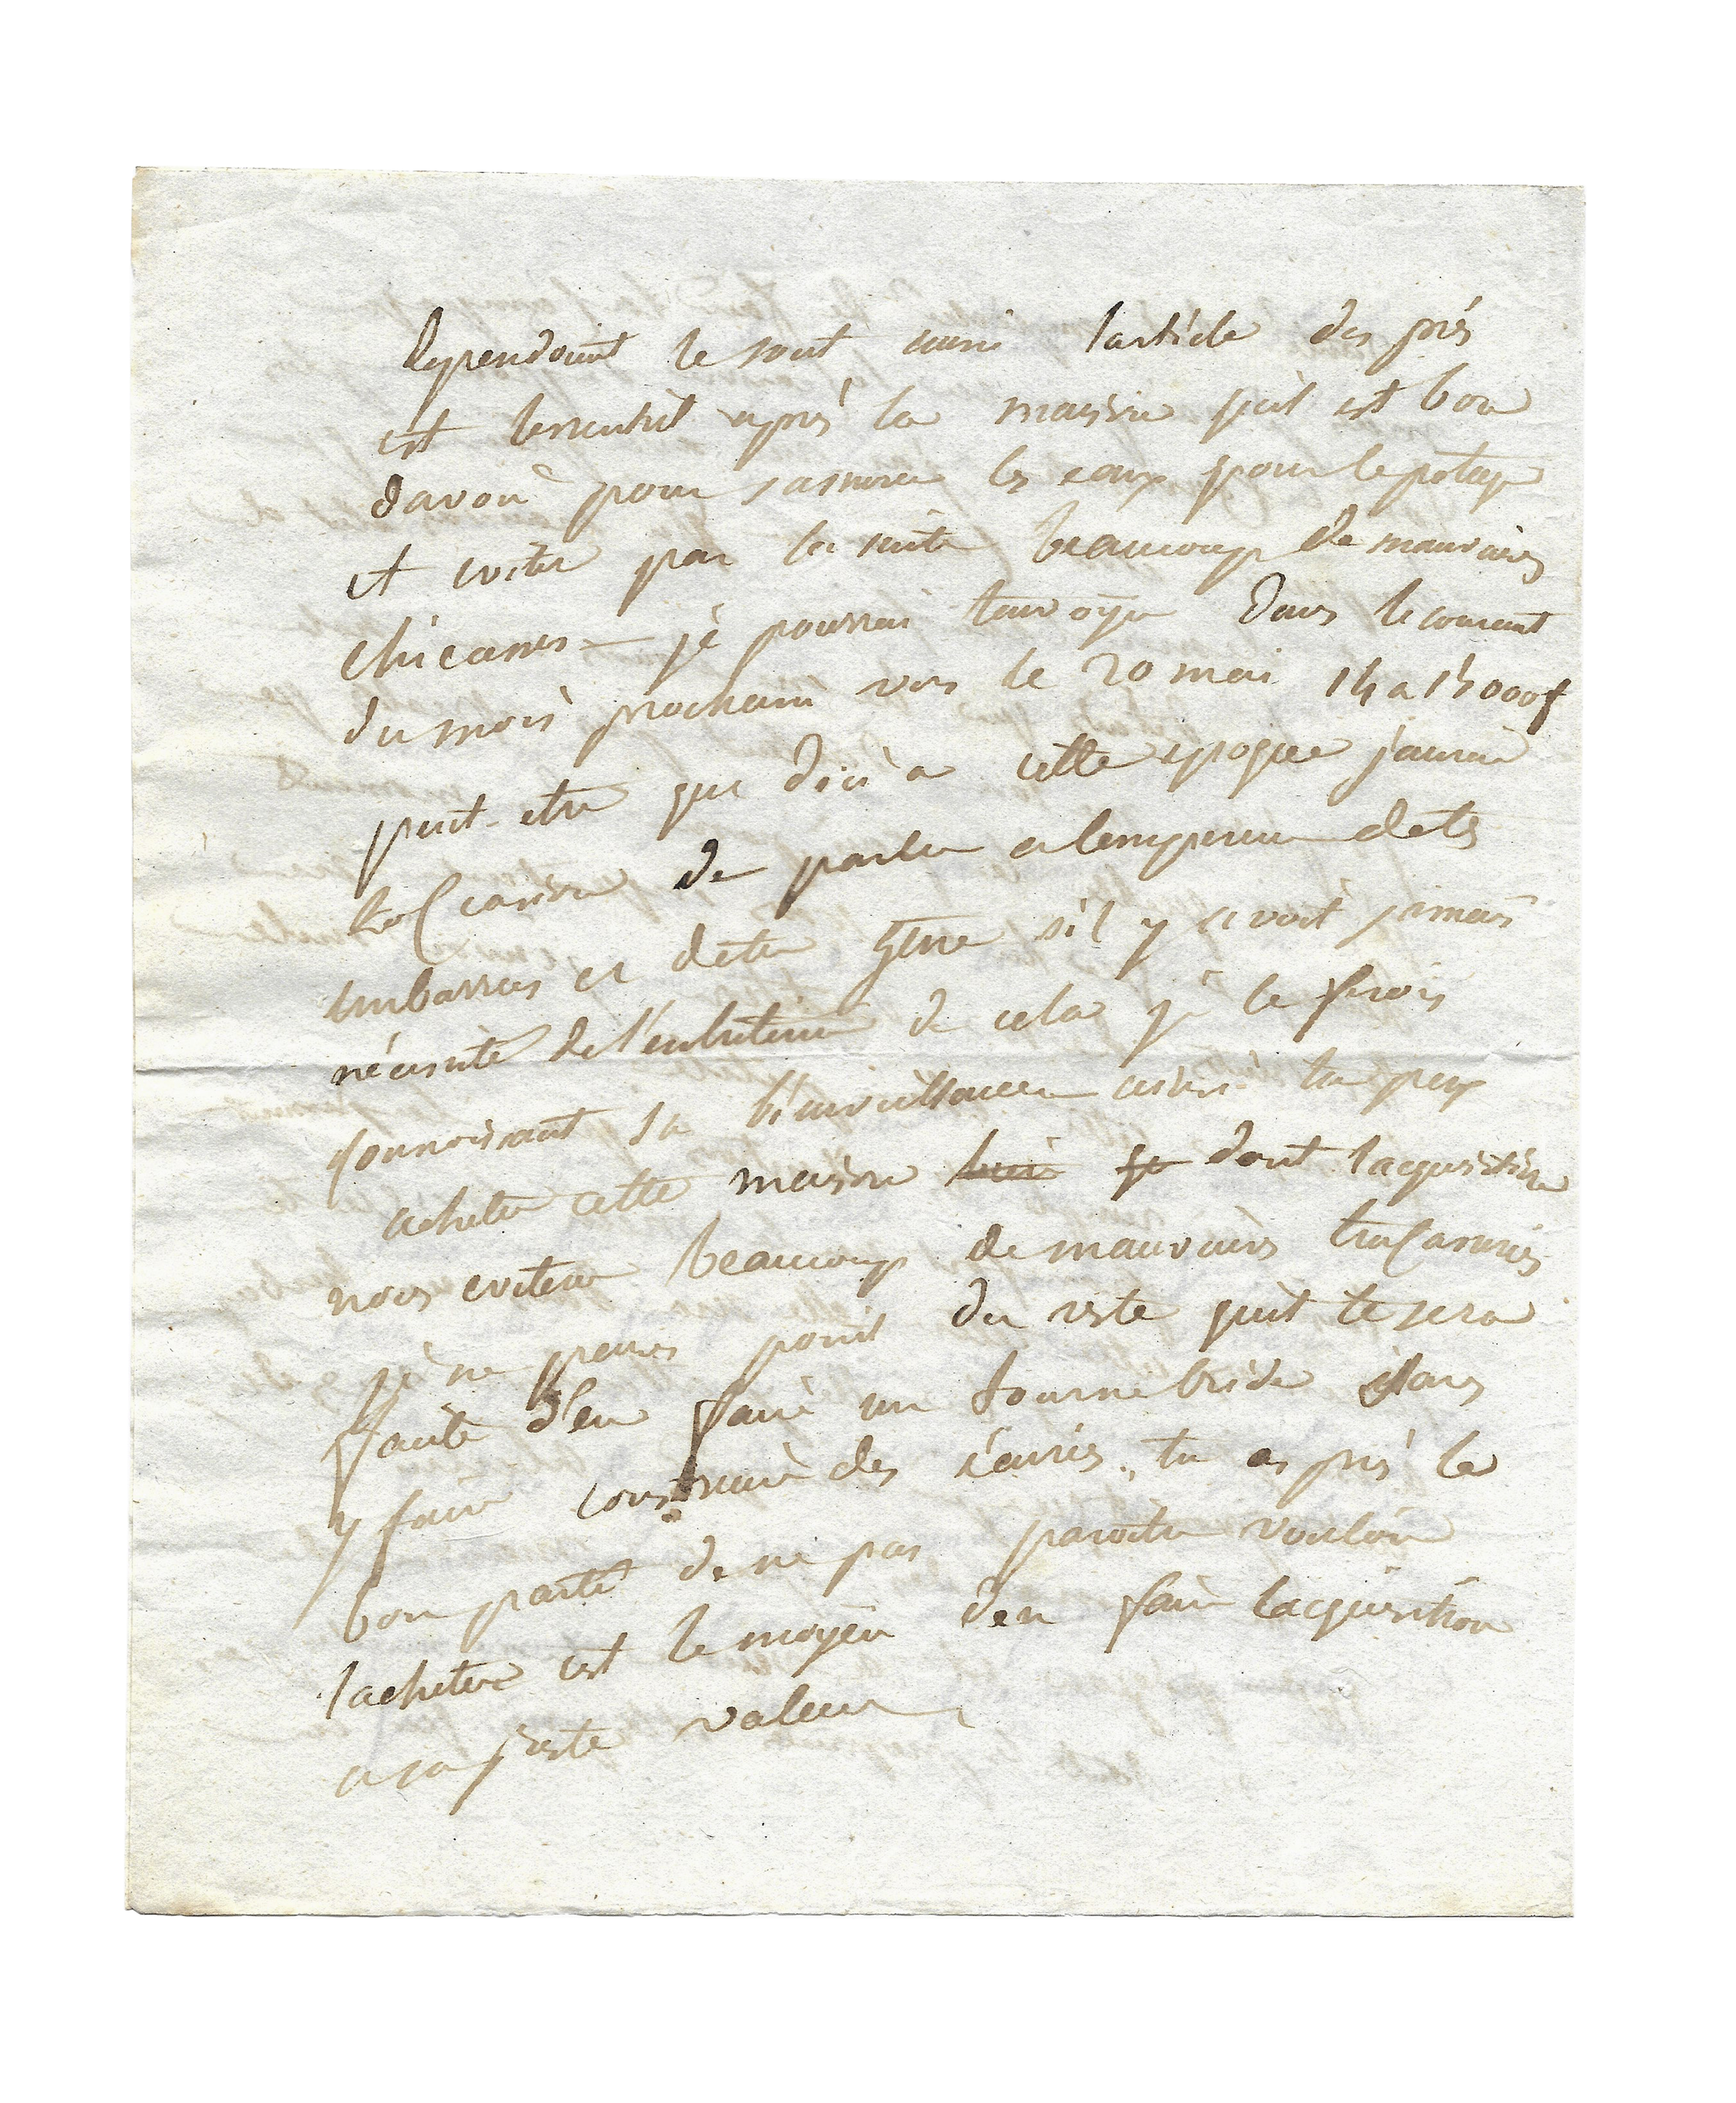 Cependant le tout aussi larticle des prés
est lessentiel après la maison quil est bon
davoir pour sassurer les eaux pour le potage
et eviter par la suite beaucoup de mauvaises
chicanes – je pourrai tenvoyer dans le courant
du mois prochain vers le 20 mai 14 a 15000f
peut-etre que dici a cette epoque jaurai
loccasion de parler a lempereur de tes
embarras et de ta gene sil y avoit jamais
nécessité de l'entretenir de cela je le ferois
connoissant sa bienveillance ainsi tu peux
acheter cette maison dont lacquisition
nous evitera beaucoup de mauvaises tracasseries
je ne pense point du reste quil te sera
facile d'en faire un tournebride dans
y faire construire des écuries. tu as pris le
bon parti de ne pas paroitre vouloir
lacheter cest le moyen den faire lacquisition
a sa juste valeur